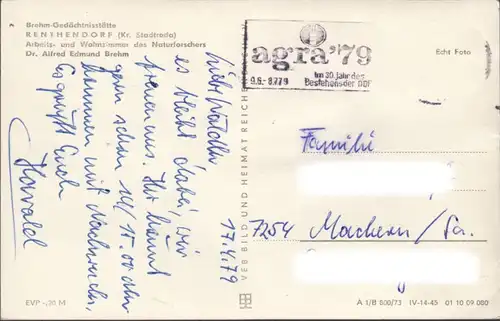 Brehm-Gedächtnisstätte
RENTHENDORF (Kr. Stadtroda)
Arbeits- und Wohnzimmer des Naturforschers
Dr. Alfred Edmund Brehm
agra '79
Im 30. Jahr des
Bestehens der DDR
Echt Foto
17.4.79
Liebe
es bleibt dabei, wir
freuen uns. Ihr könnt
gern schon 14/15.00 Uhr
kommen mit Nachwuchs.
Es grüßt Euch
Harald
VEB BILD UND HEIMAT REICHENBACH
Familie
7254 Machern/Sa.
EVP -,20 M
A 1/B 800/73 IV-14-45 01 10 09 080